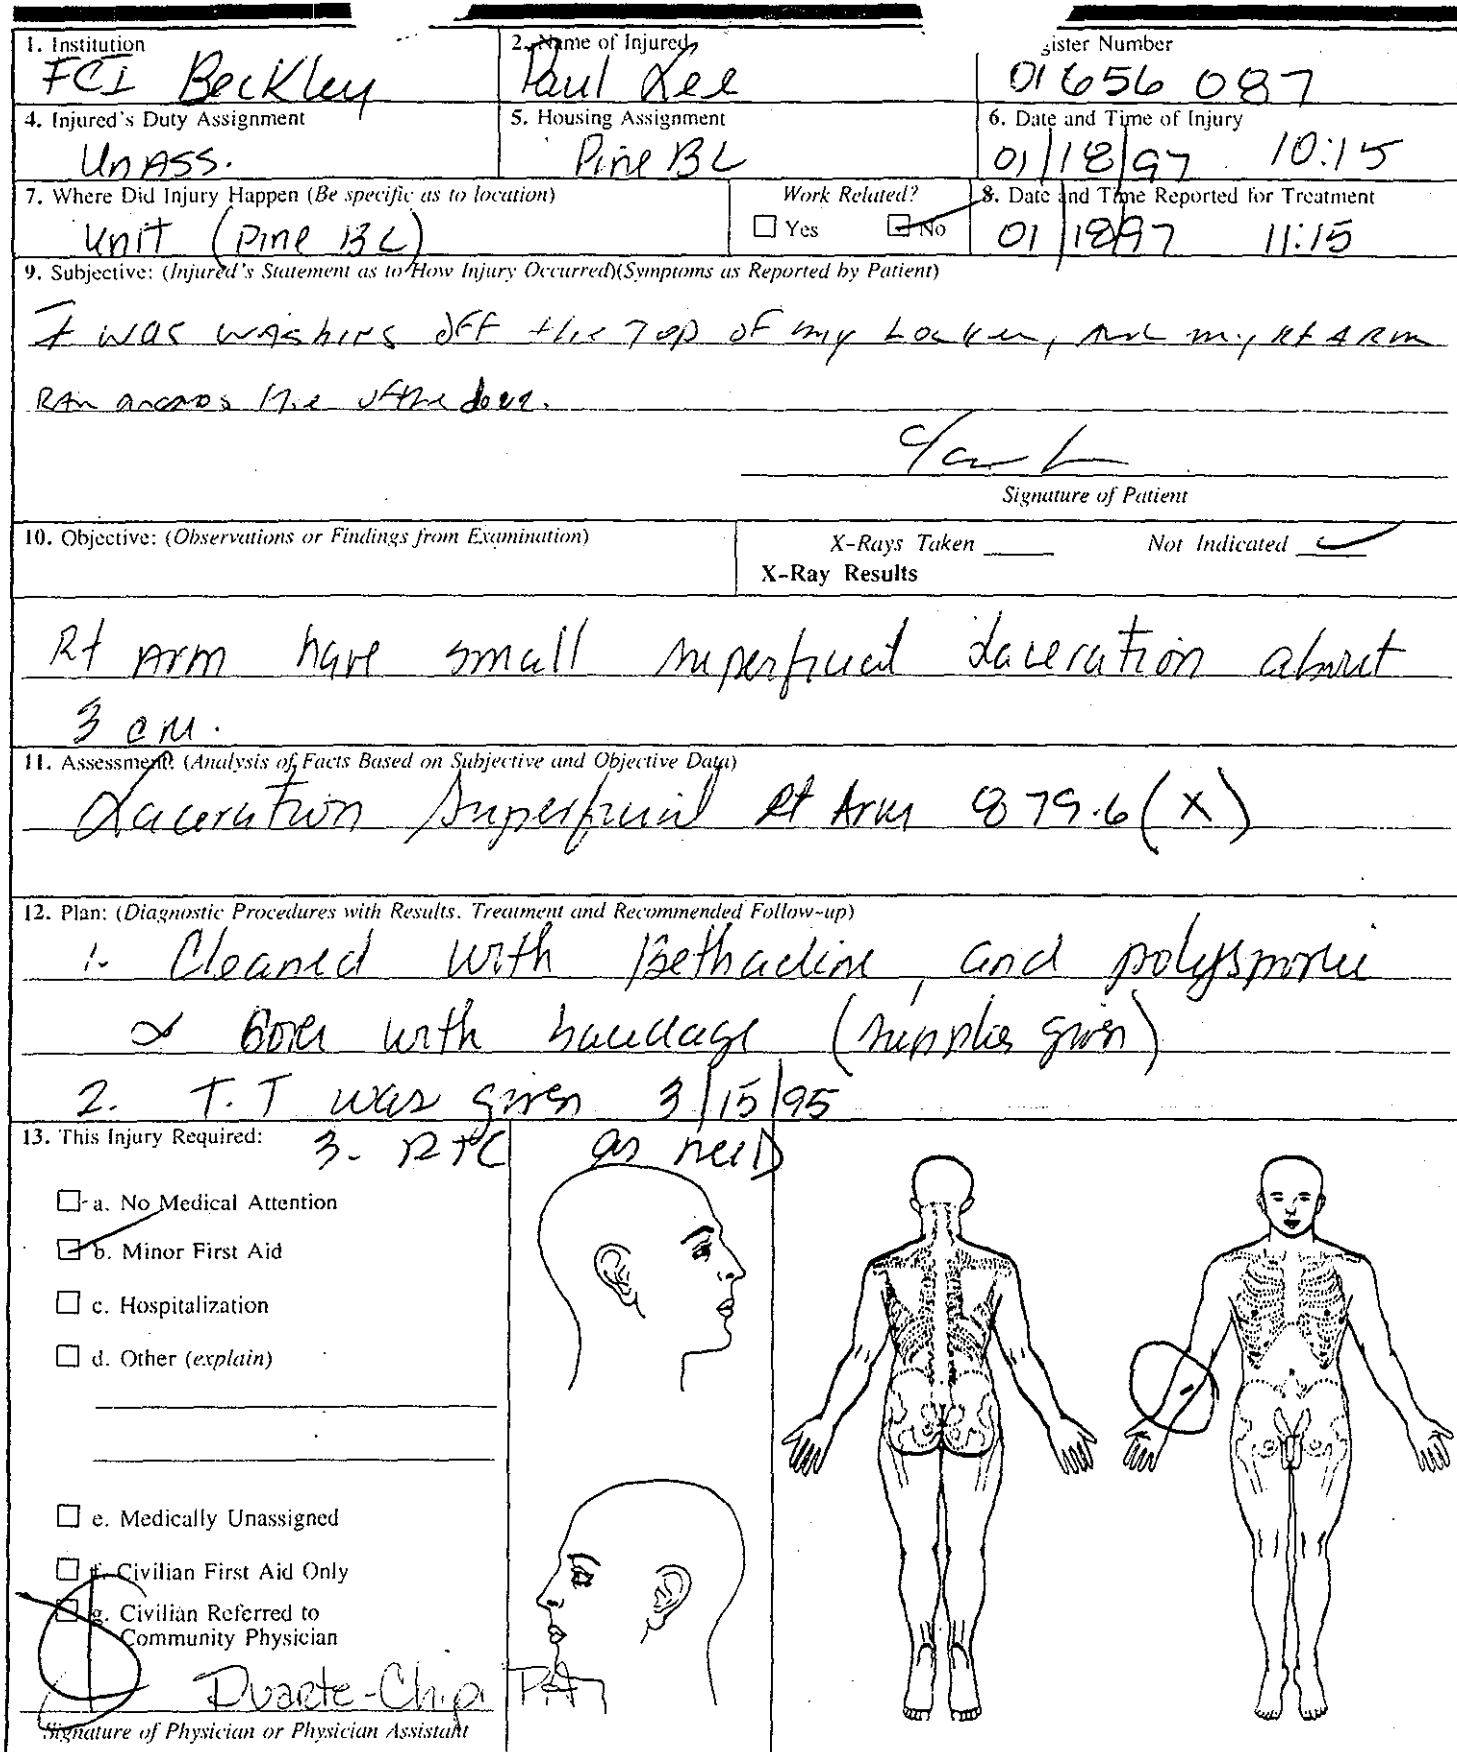 1. Institution
FCI Beckley
2. Name of Injured
Paul Lee
gister Number
01656 087
4. Injured's Duty Assignment
UnAss.
5. Housing Assignment
Pine BL
6. Date and Time of Injury
01/18/97 10:15
7. Where Did Injury Happen (Be specific as to location)
Unit (Pine BL)
Work Related?
Yes No
8. Date and Time Reported for Treatment
01/18/97 11:15
9. Subjective: (Injured's Statement as to How Injury Occurred)(Symptoms as Reported by Patient)
I was washing off the Top of my Locker, and my Rt ARm
Ran across the of the door.
Signature of Patient
10. Objective: (Observations or Findings from Examination)
X-Rays Taken Not Indicated
X-Ray Results
Rt Arm have small superficial Laceration about
3 cm.
11. Assessment: (Analysis of Facts Based on Subjective and Objective Data)
Laceration Superficial Rt Arm 879.6 (X)
12. Plan: (Diagnostic Procedures with Results. Treatment and Recommended Follow-up)
1. Cleaned with Bethadine, and polysporin
with bandage (supplies given)
2. T.T was given 3/15/95
13. This Injury Required:
3. RTC as neeD
a. No Medical Attention
b. Minor First Aid
c. Hospitalization
d. Other (explain)
e. Medically Unassigned
f. Civilian First Aid Only
g. Civilian Referred to
Community Physician
Duarte-Chip PA
Signature of Physician or Physician Assistant